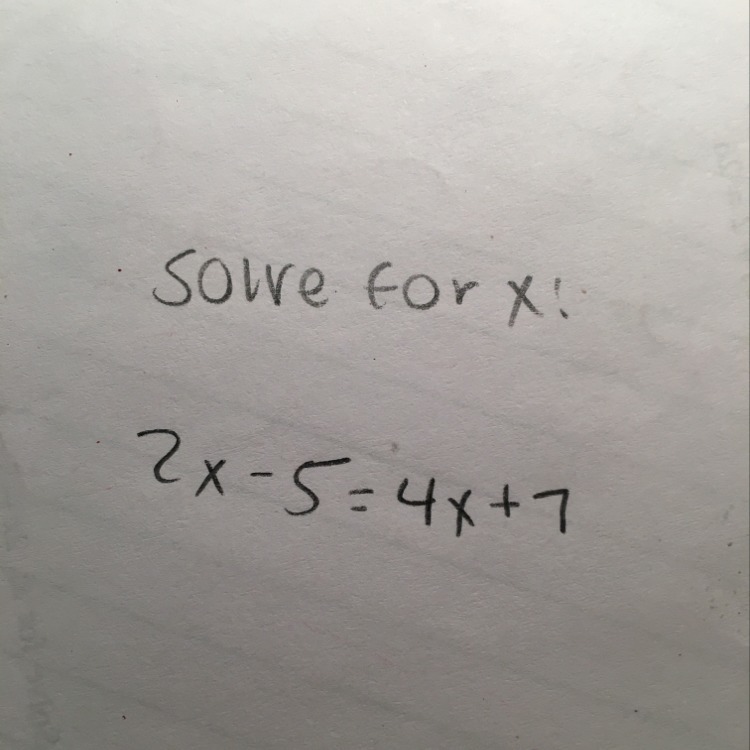 Solve for x:
2x - 5 = 4x + 7